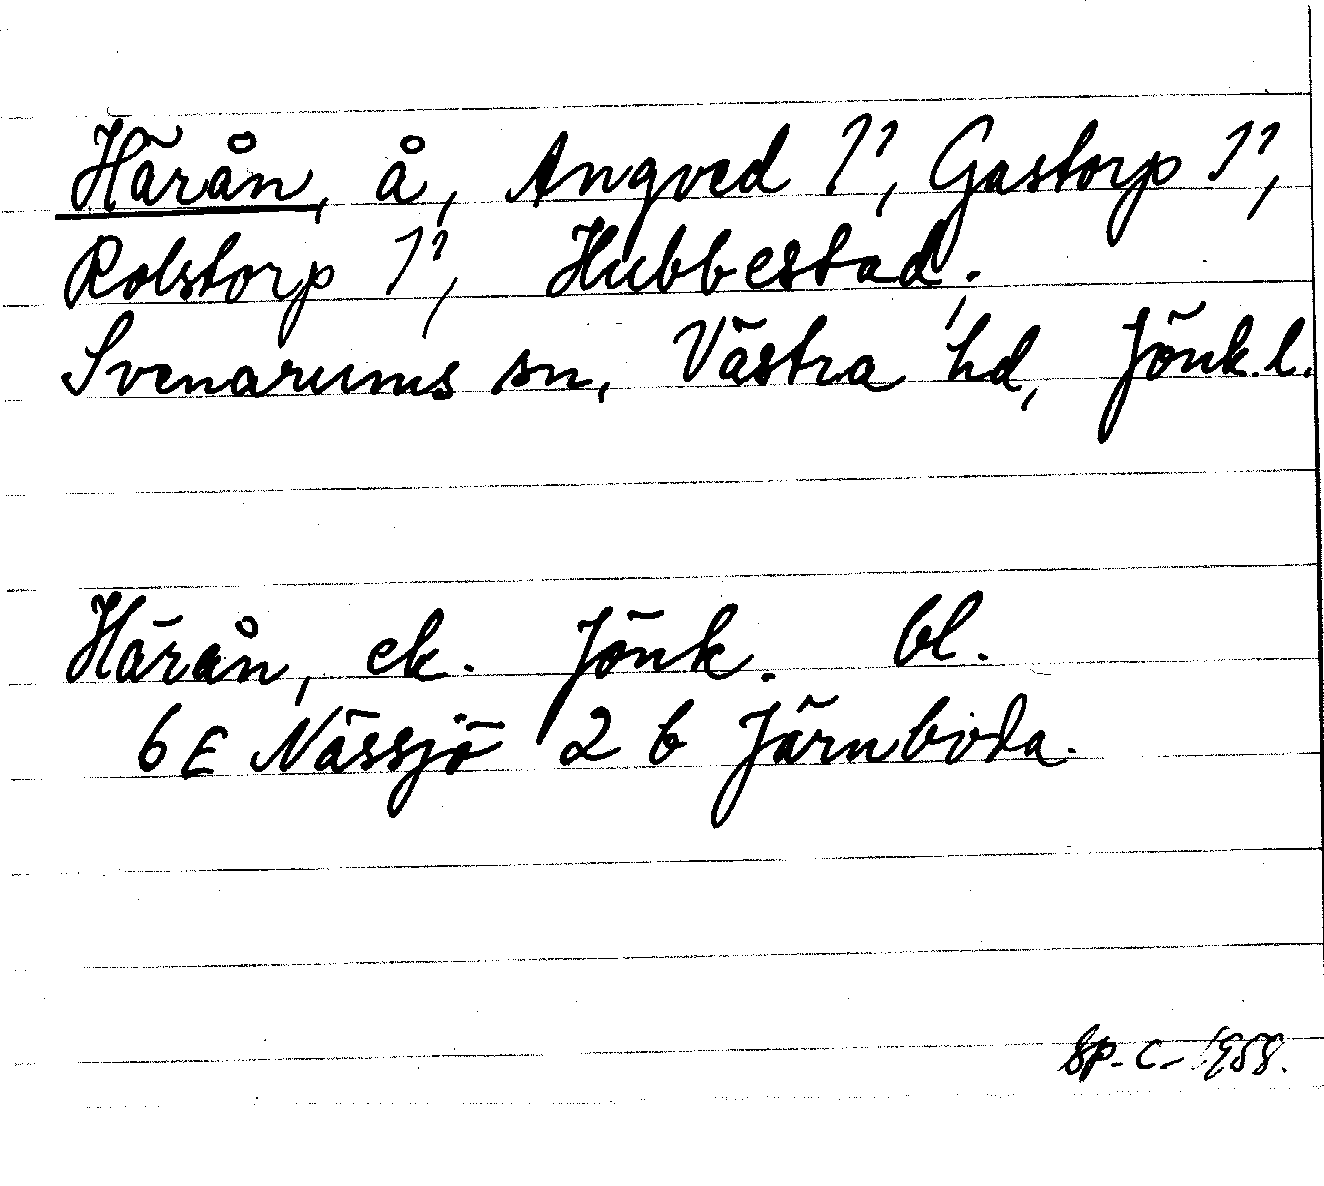 Härån, å, Angved 1², Gastorp 1²,
Rolstorp 1², Hubbestad;
Svenarums sn, Västra hd, Jönk.l.
Härån, ek. Jönk. bl.
6E Nässjö 2 b Järnboda.
1958.